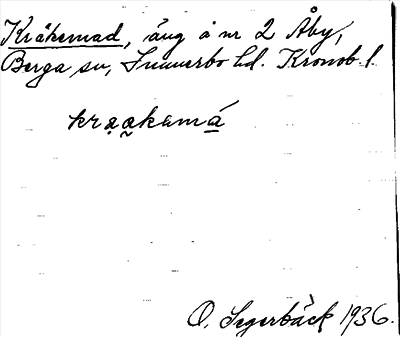 Kråkemad, äng å nr 2 Åby,
Berga sn, Sunnerbo hd. Kronob. l.
krạa̰kamá̲
O. Segerbäck 1936.